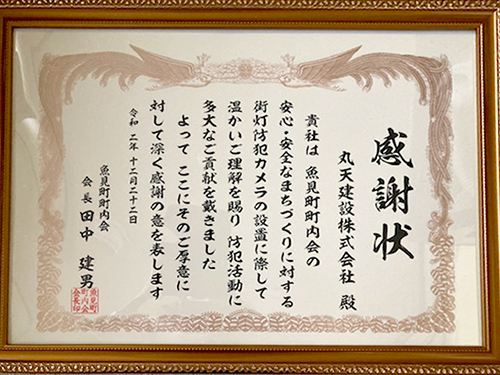 感謝状
丸天建設株式会社 殿
貴社は 魚見町町内会の
安心・安全なまちづくりに対する
街灯防犯カメラの設置に際して
温かいご理解を賜り 防犯活動に
多大なご貢献を戴きました
よって ここにそのご厚意に
対して深く感謝の意を表します
令和 二年 十二月二十二日
魚見町町内会
会長 田中 建男
魚見町
町内会
会長印